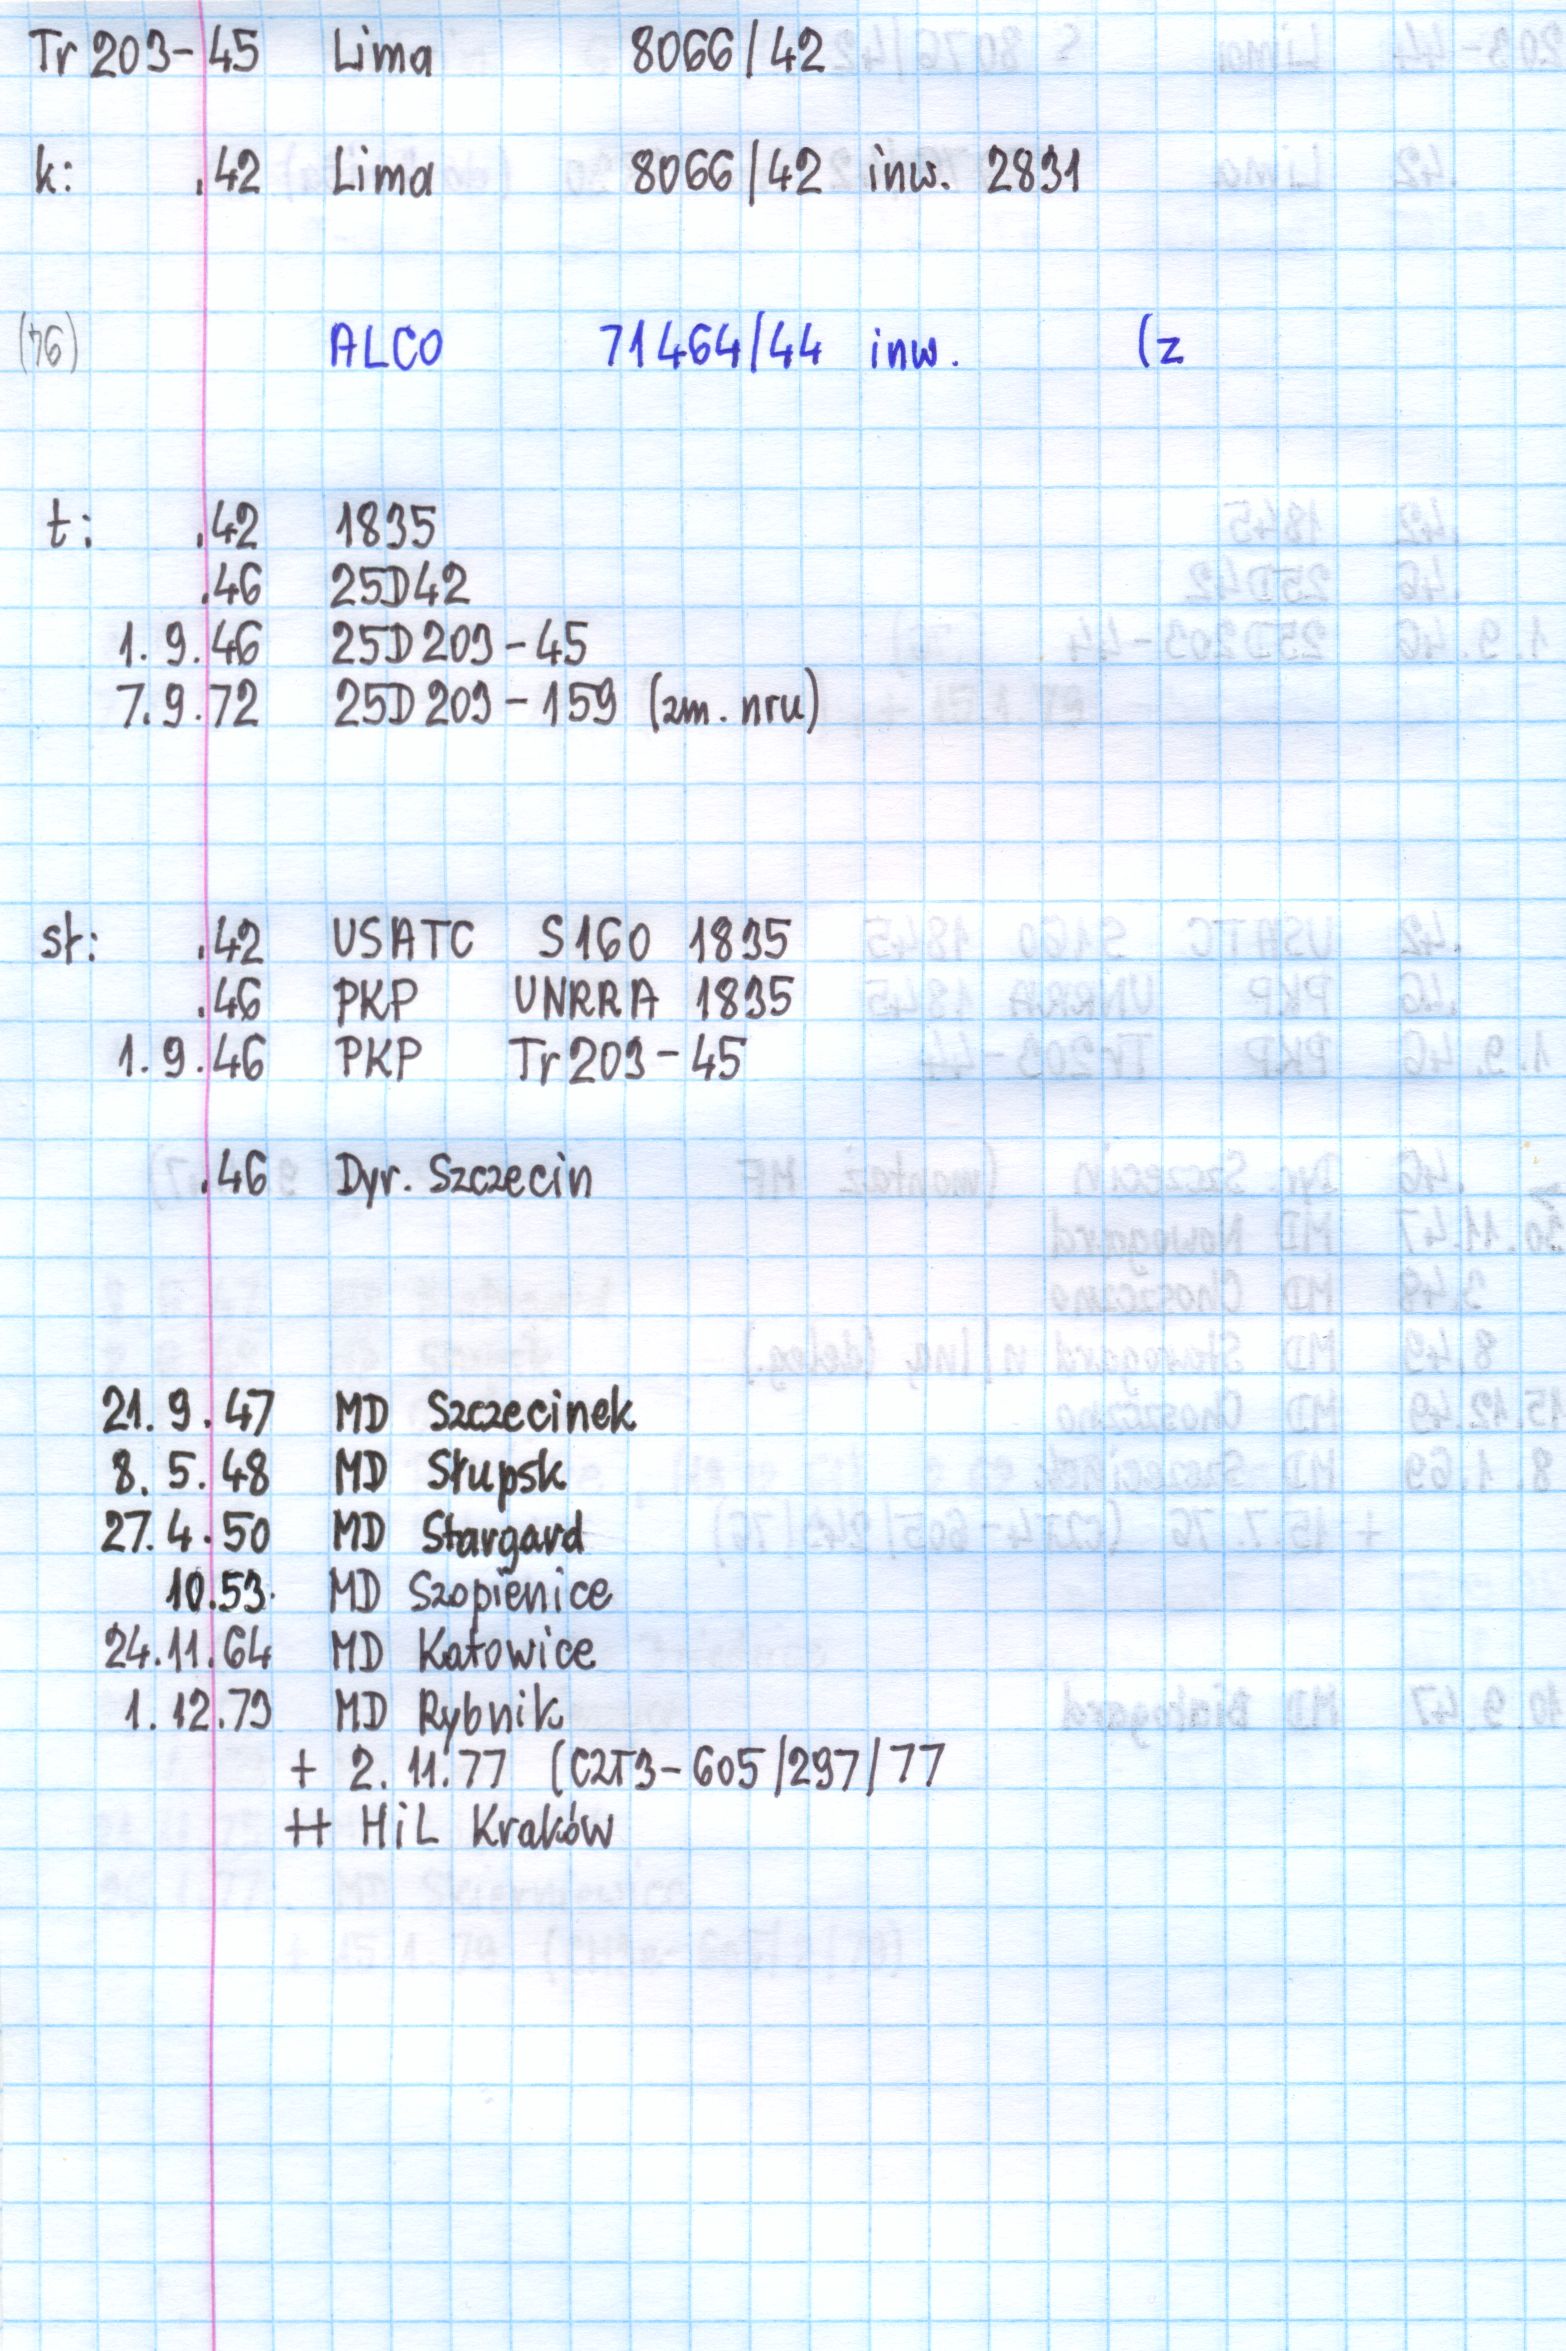 Tr 203-45 Lima 8066/42
k: .42 Lima 8066/42 inw. 2831
(76) ALCO 71464/44 inw. (z
t: .42 1835
.46 25D42
1.9.46 25D203-45
7.9.72 25D203-159 (zm. nru)
st: .42 USATC S160 1835
.46 PKP UNRRA 1835
1.9.46 PKP Tr203-45
.46 Dyr. Szczecin
21.9.47 MD Szczecinek
8.5.48 MD Słupsk
27.4.50 MD Stargard
10.53. MD Szopienice
24.11.64 MD Katowice
1.12.73 MD Rybnik
+ 2.11.77 (C2T3-605/297/77
++ HiL Kraków